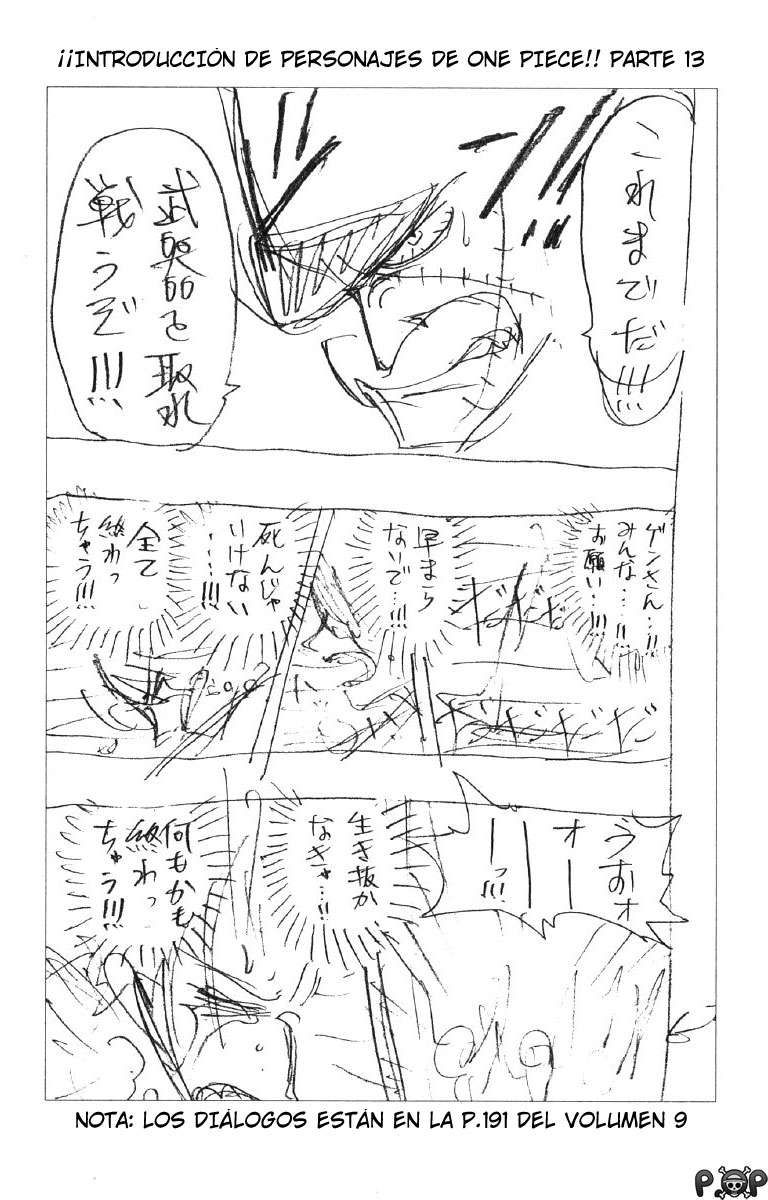 ¡¡INTRODUCCIÓN DE PERSONAJES DE ONE PIECE!! PARTE 13
これまでだ!!!
武器を取れ
戦うぞ!!!
ゲンさん…!!
みんな…!!
お願い…!!!
早まら
ないで…!!!
死んじゃ
いけない
…!!!
全て
終わっ
ちゃう!!!
だだだ
だだだだだ
うおォ
ォーー
ーっ!!!
生き抜か
なきゃ…!!
何もかも
終わっ
ちゃう!!!
NOTA: LOS DIÁLOGOS ESTÁN EN LA P.191 DEL VOLUMEN 9
P.OP